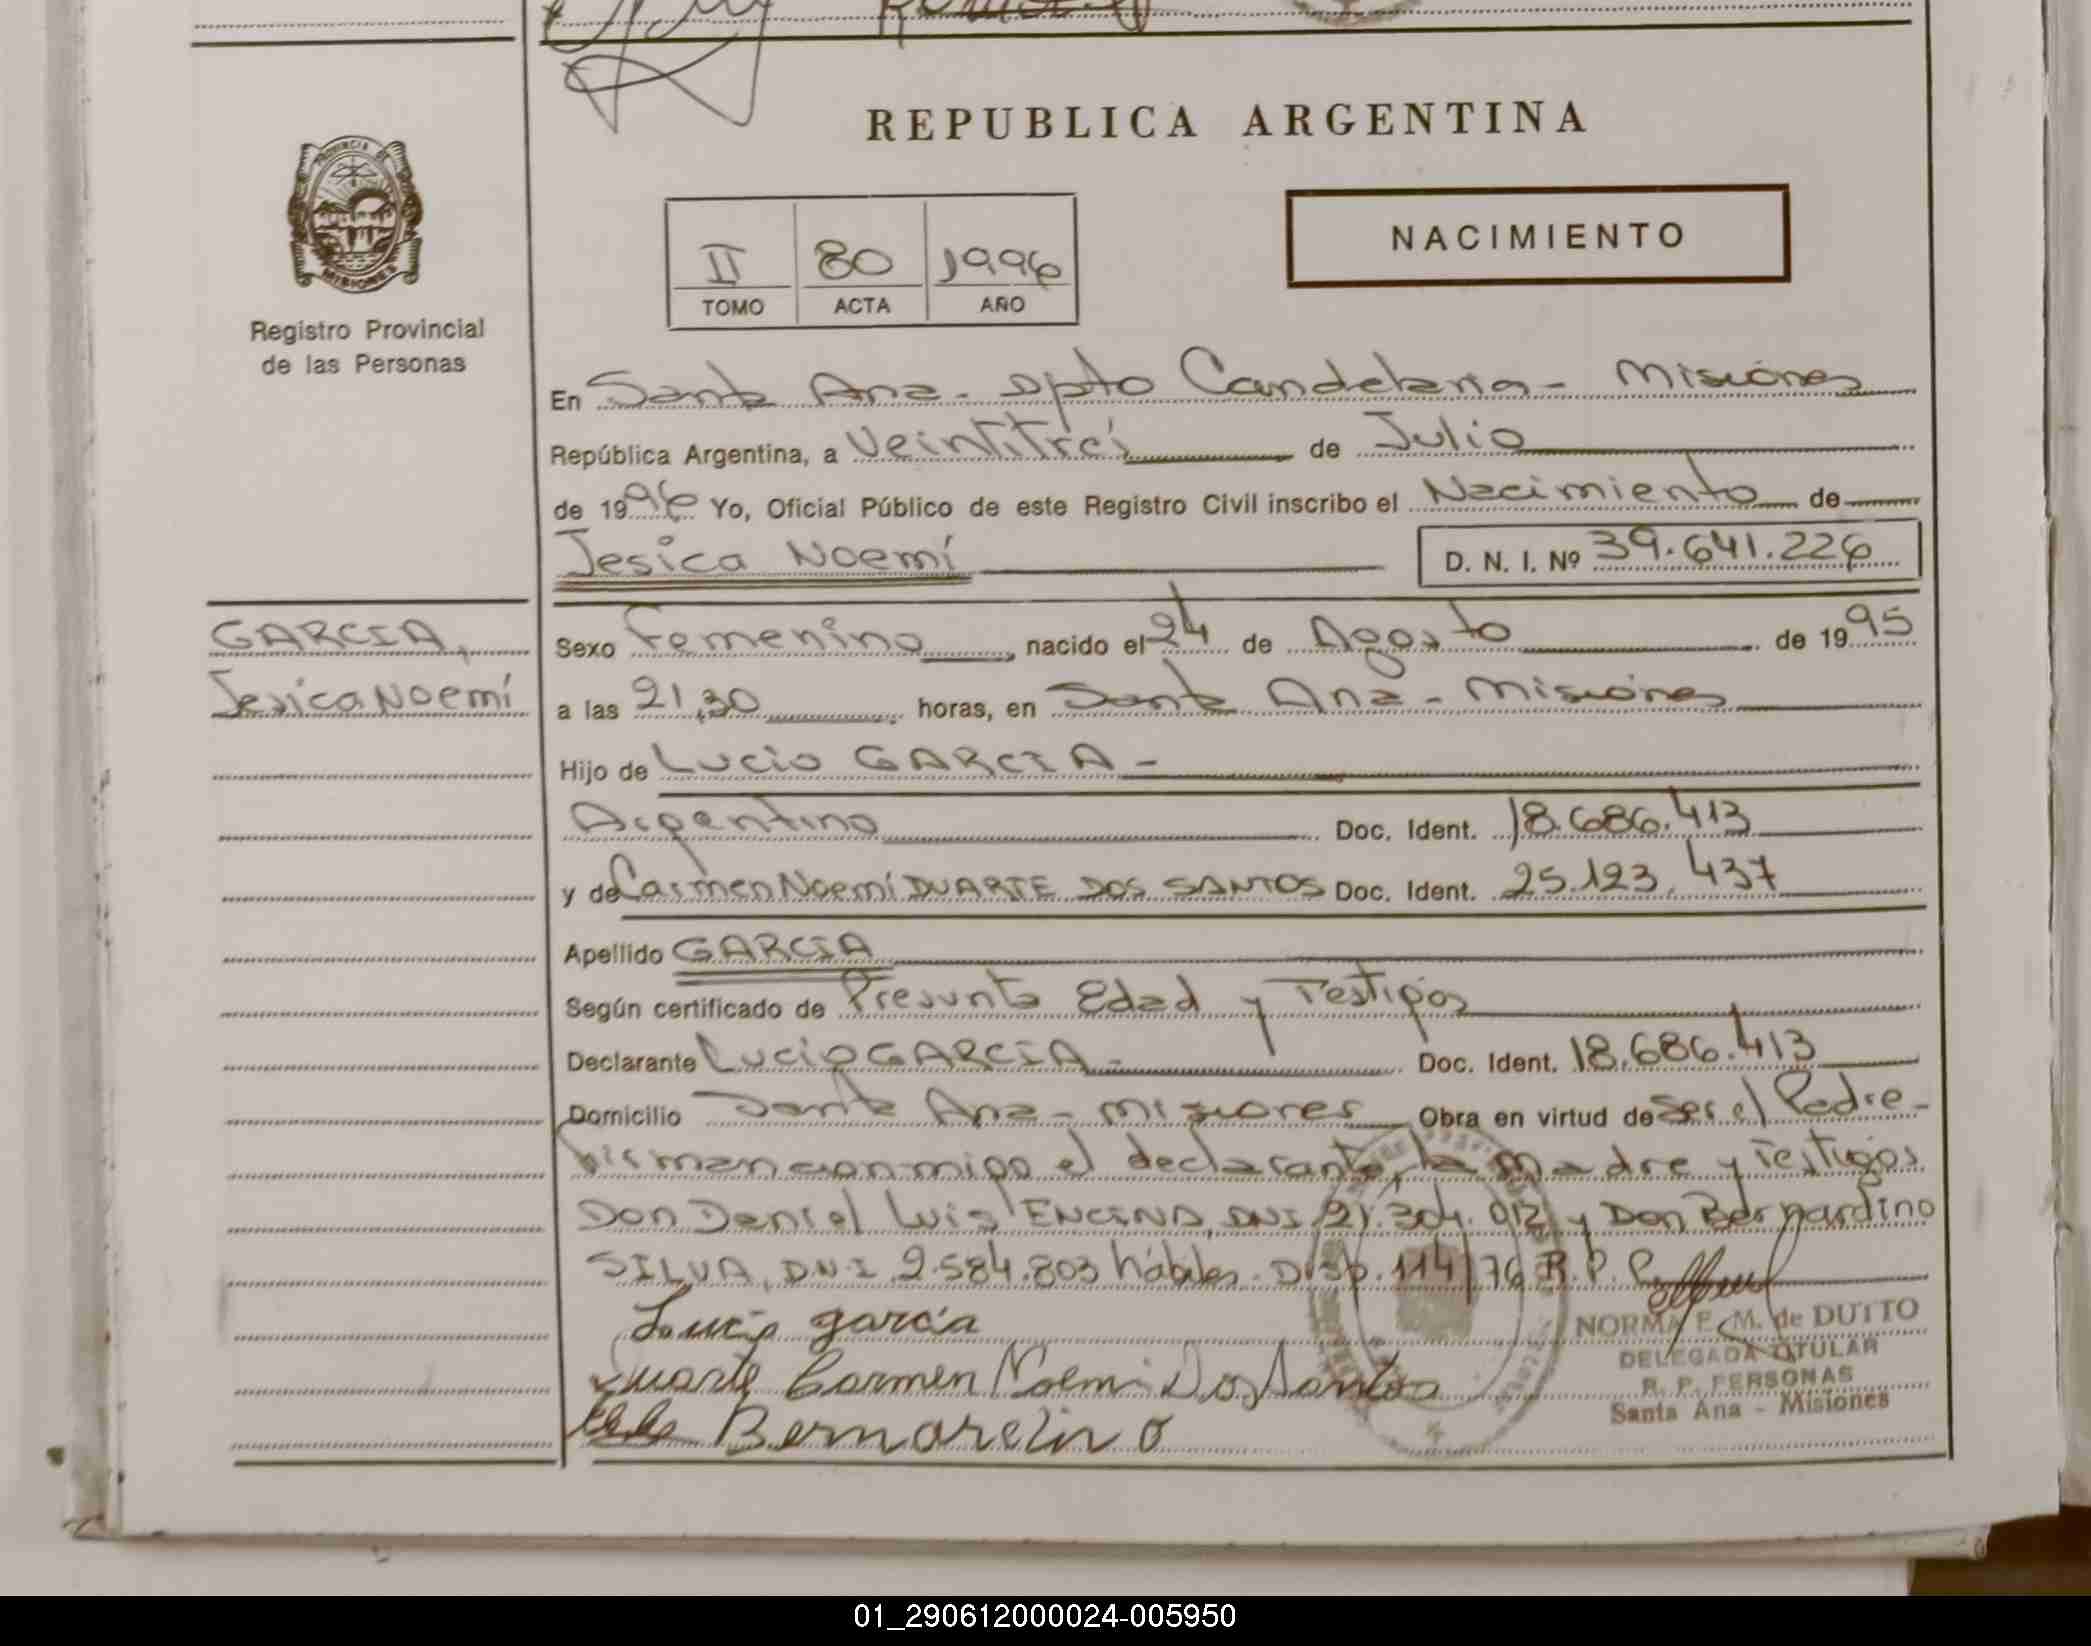 REPUBLICA ARGENTINA
PROVINCIA DE
MISIONES
Registro Provincial
de las Personas
II 80 1996
TOMO ACTA AÑO
NACIMIENTO
En Santa Ana - Dpto Candelaria - Misiones
República Argentina, a Veintitrés de Julio
de 1996 Yo, Oficial Público de este Registro Civil inscribo el Nacimiento de
Jesica Noemí D. N. I. Nº 39.641.226
GARCIA,
Jesica Noemí
Sexo Femenino, nacido el 24 de Agosto de 1995
a las 21,30 horas, en Santa Ana - Misiones
Hijo de Lucio GARCIA -
Argentino Doc. Ident. 18.686.413
y de Carmen Noemí DUARTE DOS SANTOS Doc. Ident. 25.123.437
Apellido GARCIA
Según certificado de Presunta Edad y Testigos
Declarante Lucio GARCIA - Doc. Ident. 18.686.413
Domicilio Santa Ana - Misiones Obra en virtud de Ser el Padre -
Firman conmigo el declarante, la Madre y Testigos
Don Daniel Luis ENCINA, DNI 21.304.912 y Don Bernardino
SILVA, D.N.I 2.584.803 hábiles. Disp. 114/76 R.P.P.
Lucio garcia
Duarte Carmen Noemi Dos Santos
Bernardino
NORMA E. M. de DUTTO
DELEGADA TITULAR
R. P. PERSONAS
Santa Ana - Misiones
01_290612000024-005950